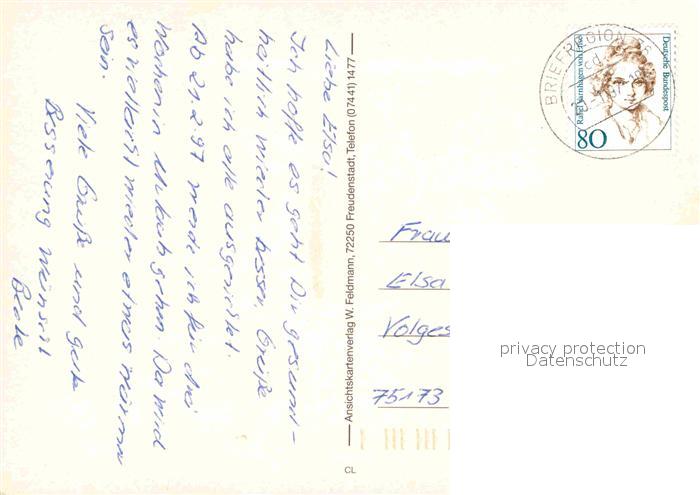 Liebe Elsa!
Ich hoffe es geht Dir gesund-
heitlich wieder besser, Grüße
habe ich alle ausgerichtet.
Ab 21.2.97 werde ich für drei
Wochen in Urlaub gehen. Da wird
es vielleicht wieder etwas wärmer
sein.
Viele Grüße und gute
Besserung wünscht
Beate
Ansichtskartenverlag W. Feldmann, 72250 Freudenstadt, Telefon (07441) 1477
BRIEFREGION
Rahel Varnhagen von Ense
Deutsche Bundespost
80
Frau
Elsa
Volges
75173
privacy protection
Datenschutz
CL